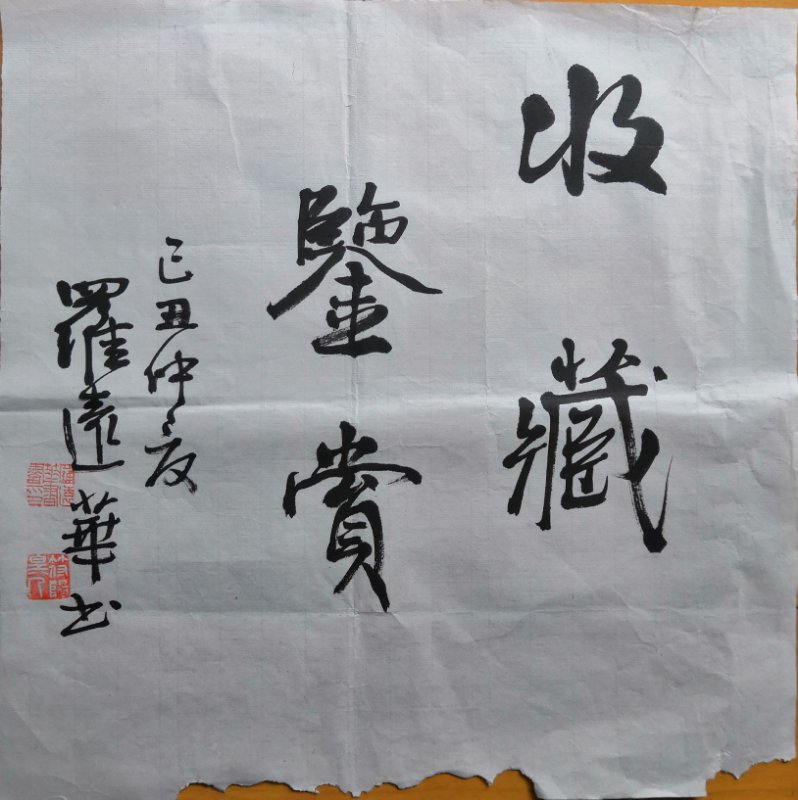 收藏
鑒賞
己丑仲夏
羅遠華书